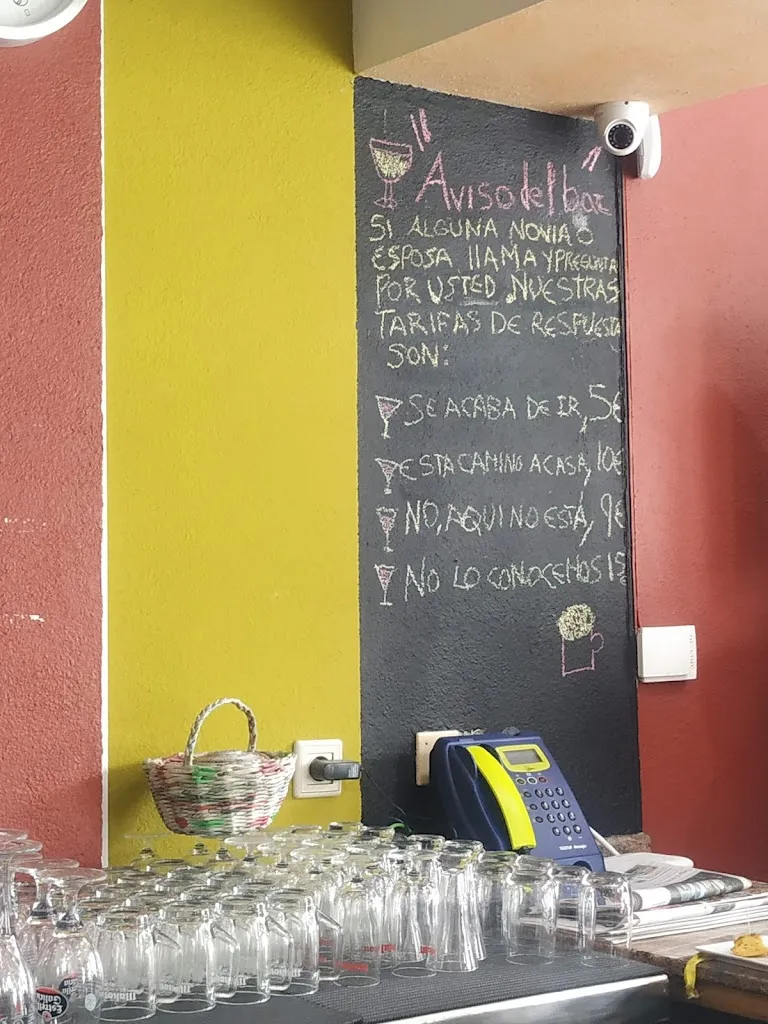 "Aviso del bar"
SI ALGUNA NOVIA O
ESPOSA llAMA Y PREGUNTA
POR USTED NUESTRAS
TARIFAS DE RESPUESTA
SON:
SE ACABA DE IR, 5€
ESTA CAMINO A CASA, 10€
NO, AQUI NO ESTÁ, 9€
NO LO CONOCEMOS 15
Mahou
Estrella
Galicia